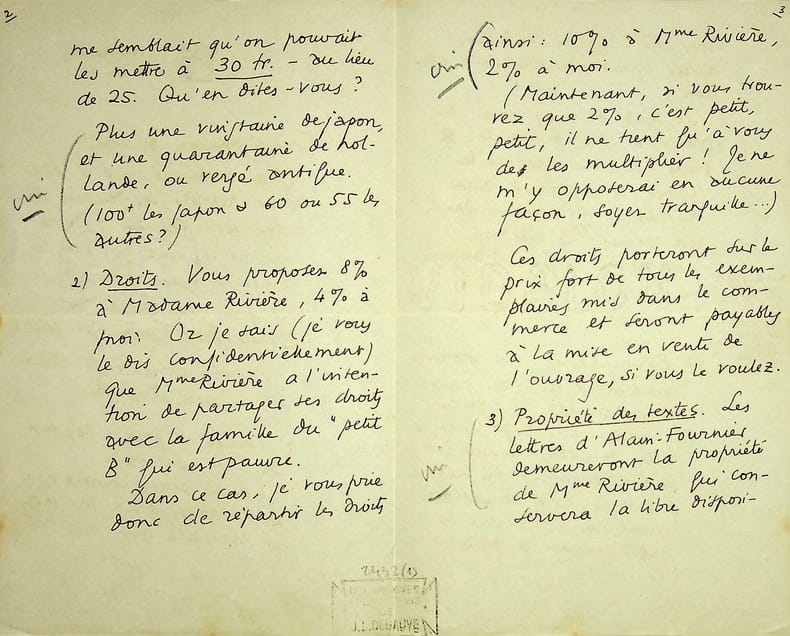 2
me semblait qu'on pouvait
les mettre à 30 fr. - au lieu
de 25. Qu'en dites-vous ?
Plus une vingtaine de japon,
et une quarantaine de hol-
lande, ou vergé antique.
(100f les japon & 60 ou 55 les
autres ?)
oui
2) Droits. Vous proposez 8%
à Madame Rivière, 4% à
moi. Or je sais (je vous
le dis confidentiellement)
que Mme Rivière a l'inten-
tion de partager ses droits
avec la famille du "petit
B" qui est pauvre.
Dans ce cas, je vous prie
donc de répartir les droits
3
ainsi : 10% à Mme Rivière,
2% à moi.
oui
(Maintenant, si vous trou-
vez que 2%, c'est petit,
petit, il ne tient qu'à vous
de les multiplier ! Je ne
m'y opposerai en aucune
façon, soyez tranquille...)
Ces droits porteront sur le
prix fort de tous les exem-
plaires mis dans le com-
merce et seront payables
à la mise en vente de
l'ouvrage, si vous le voulez.
3) Propriété des textes. Les
lettres d'Alain-Fournier
demeureront la propriété
de Mme Rivière qui con-
servera la libre disposi-
oui
2432(1)